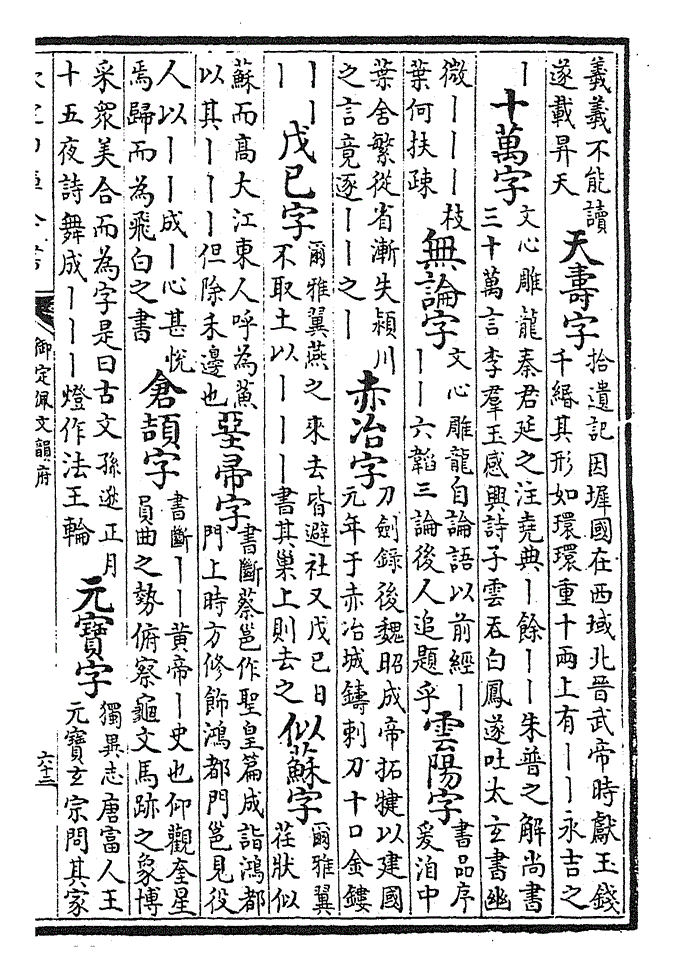 義義不能讀
遂載昇天
天壽字
拾遺記因墀國在西域北晉武帝時獻王錢
千緡其形如環環重十兩上有丨丨永吉之
丨
十萬字
文心雕龍秦君延之注堯典丨餘丨丨朱普之解尚書
三十萬言李羣玉感興詩子雲吞白鳳遂吐太玄書幽
微丨丨丨枝
葉何扶疎
無論字
文心雕龍自論語以前經丨
丨丨六韜三論後人追題乎
雲陽字
書品序
爰洎中
葉舍繁從省漸失潁川
之言竟逐丨丨之丨
赤冶字
刀劍錄後魏昭成帝拓犍以建國
元年于赤冶城鑄刺刀十口金鏤
丨丨
丨
戊巳字
爾雅翼燕之來去皆避社又戊巳日
不取土以丨丨丨書其巢上則去之
似蘇字
爾雅翼
荏狀似
蘇而髙大江東人呼為
以其丨丨丨但除禾邊也
堊帚字
書斷蔡邕作聖皇篇成詣鴻都
門上時方修飾鴻都門邕見役
人以丨丨成丨心甚悅
焉歸而為飛白之書
倉頡字
書斷丨丨黄帝丨史也仰觀奎星
員曲之勢俯察龜文馬跡之象博
采眾美合而為字是曰古文孫逖正月
十五夜詩舞成丨丨丨燈作法王輪
元寶字
獨異志唐富人王
元寶玄宗問其家
御定佩文韻府
六十三